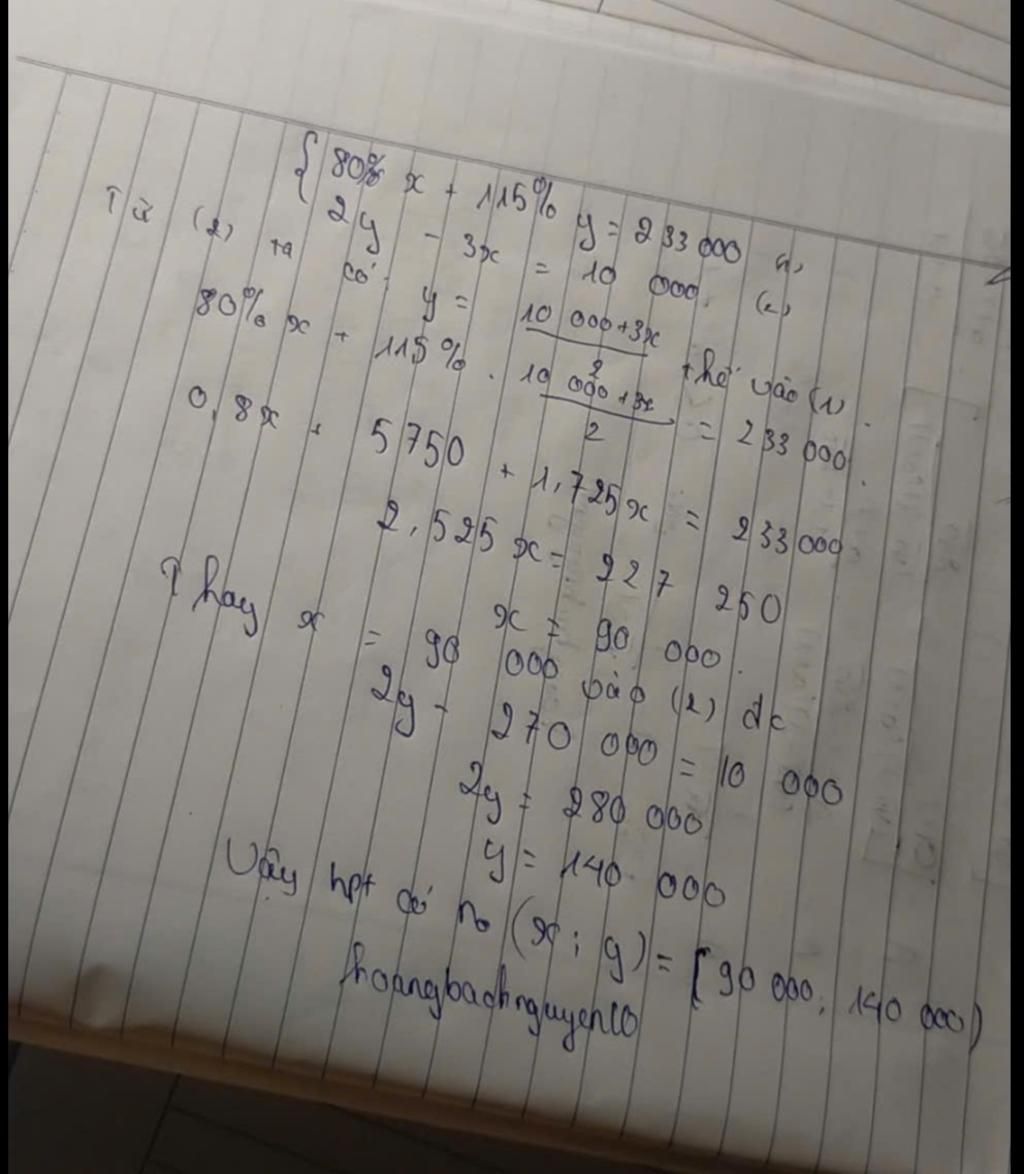 { 80% x + 115% y = 233 000 (1)
2y - 3x = 10 000. (2)
Từ (2) ta có: y = 10 000+3x / 2 thế vào (1)
80% x + 115% . 10 000+3x / 2 = 233 000.
0,8x + 5750 + 1,725x = 233 000
2,525x = 227 250
x = 90 000.
Thay x = 90 000 vào (2) đc
2y - 270 000 = 10 000
2y = 280 000
y = 140 000
Vậy hpt có no (x; y) = (90 000; 140 000)
hoangbachnguyen10